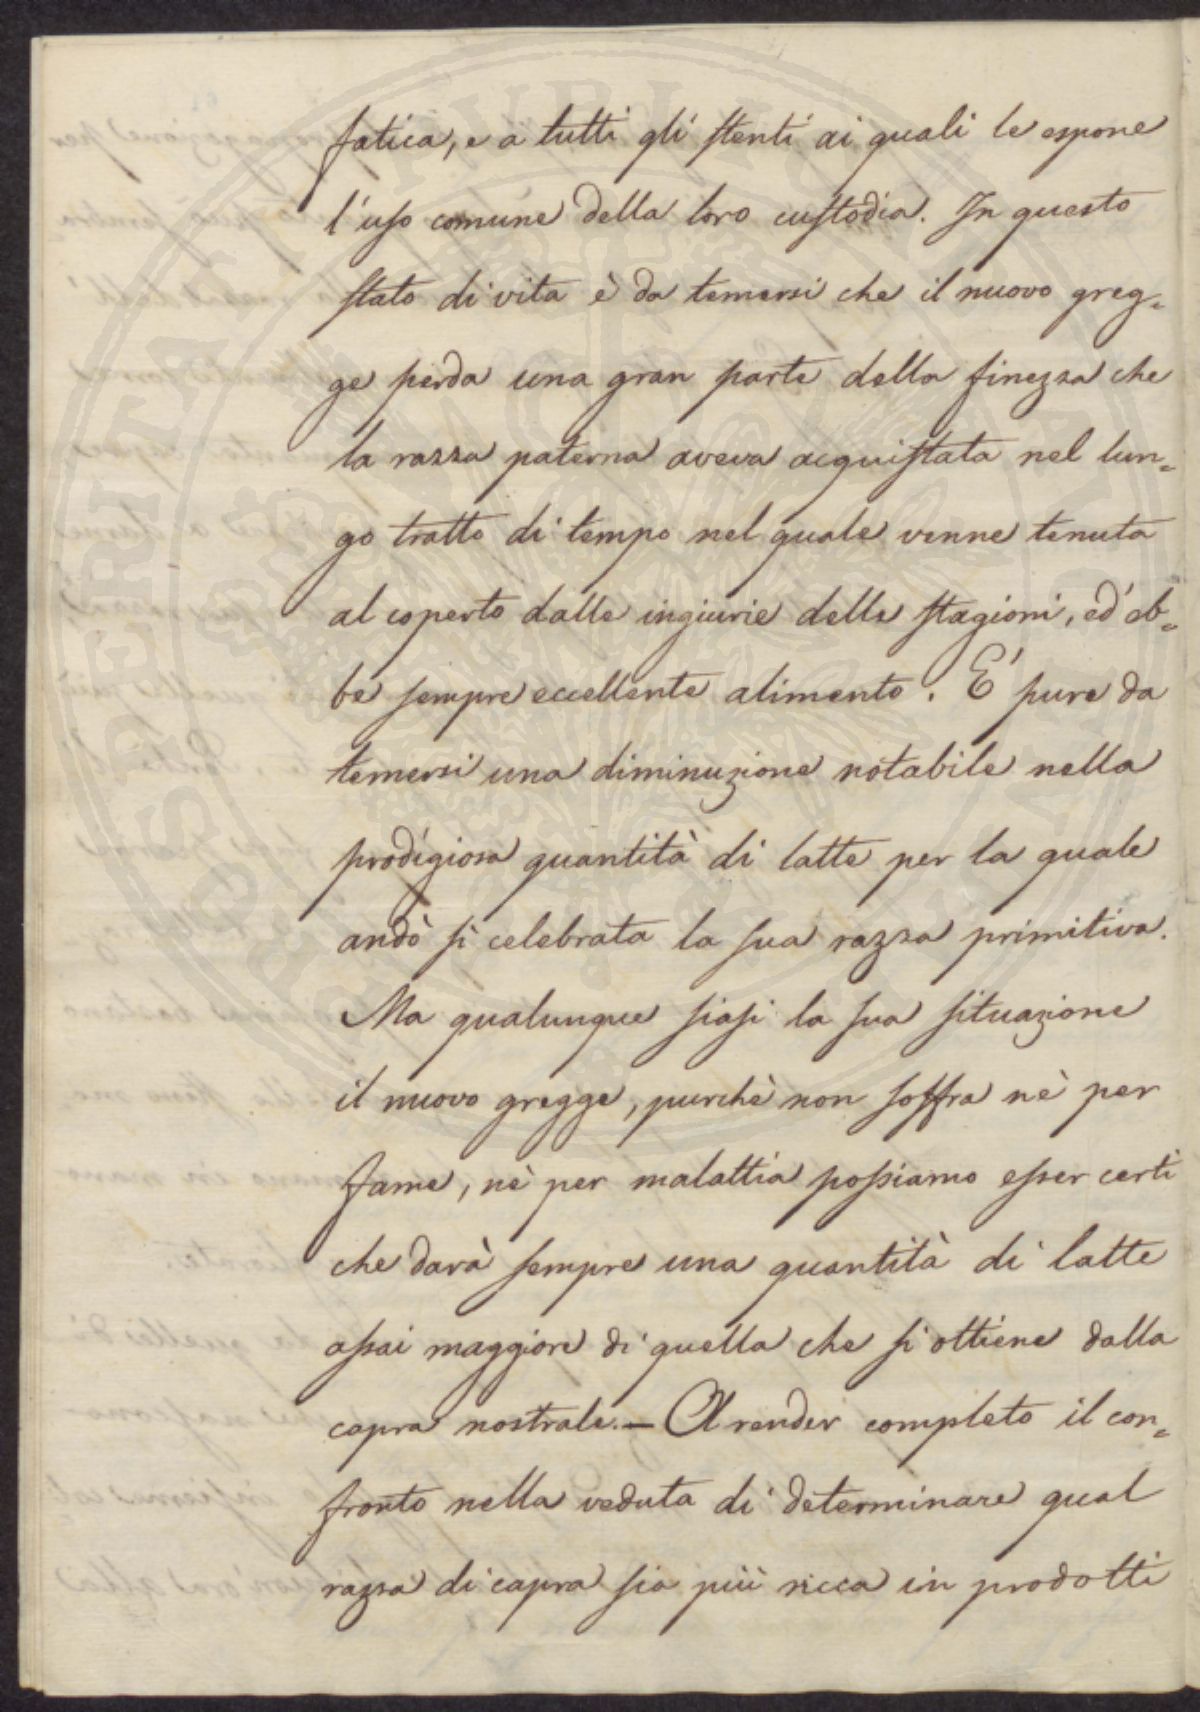 fatica, e a tutti gli stenti ai quali le espone
l'uso comune della loro custodia. In questo
stato di vita è da temersi che il nuovo greg=
ge perda una gran parte della finezza che
la razza paterna aveva acquistata nel lun=
go tratto di tempo nel quale venne tenuta
al coperto dalle ingiurie delle stagioni, ed eb=
be sempre eccellente alimento. E' pure da
temersi una diminuzione notabile nella
prodigiosa quantità di latte per la quale
andò sì celebrata la sua razza primitiva.
Ma qualunque siasi la sua situazione
il nuovo gregge, purchè non soffra nè per
fame, nè per malattia possiamo esser certi
che darà sempre una quantità di latte
assai maggiore di quella che si ottiene dalla
capra nostrale. — A render completo il con=
fronto nella veduta di determinare qual
razza di capra sia più ricca in prodotti